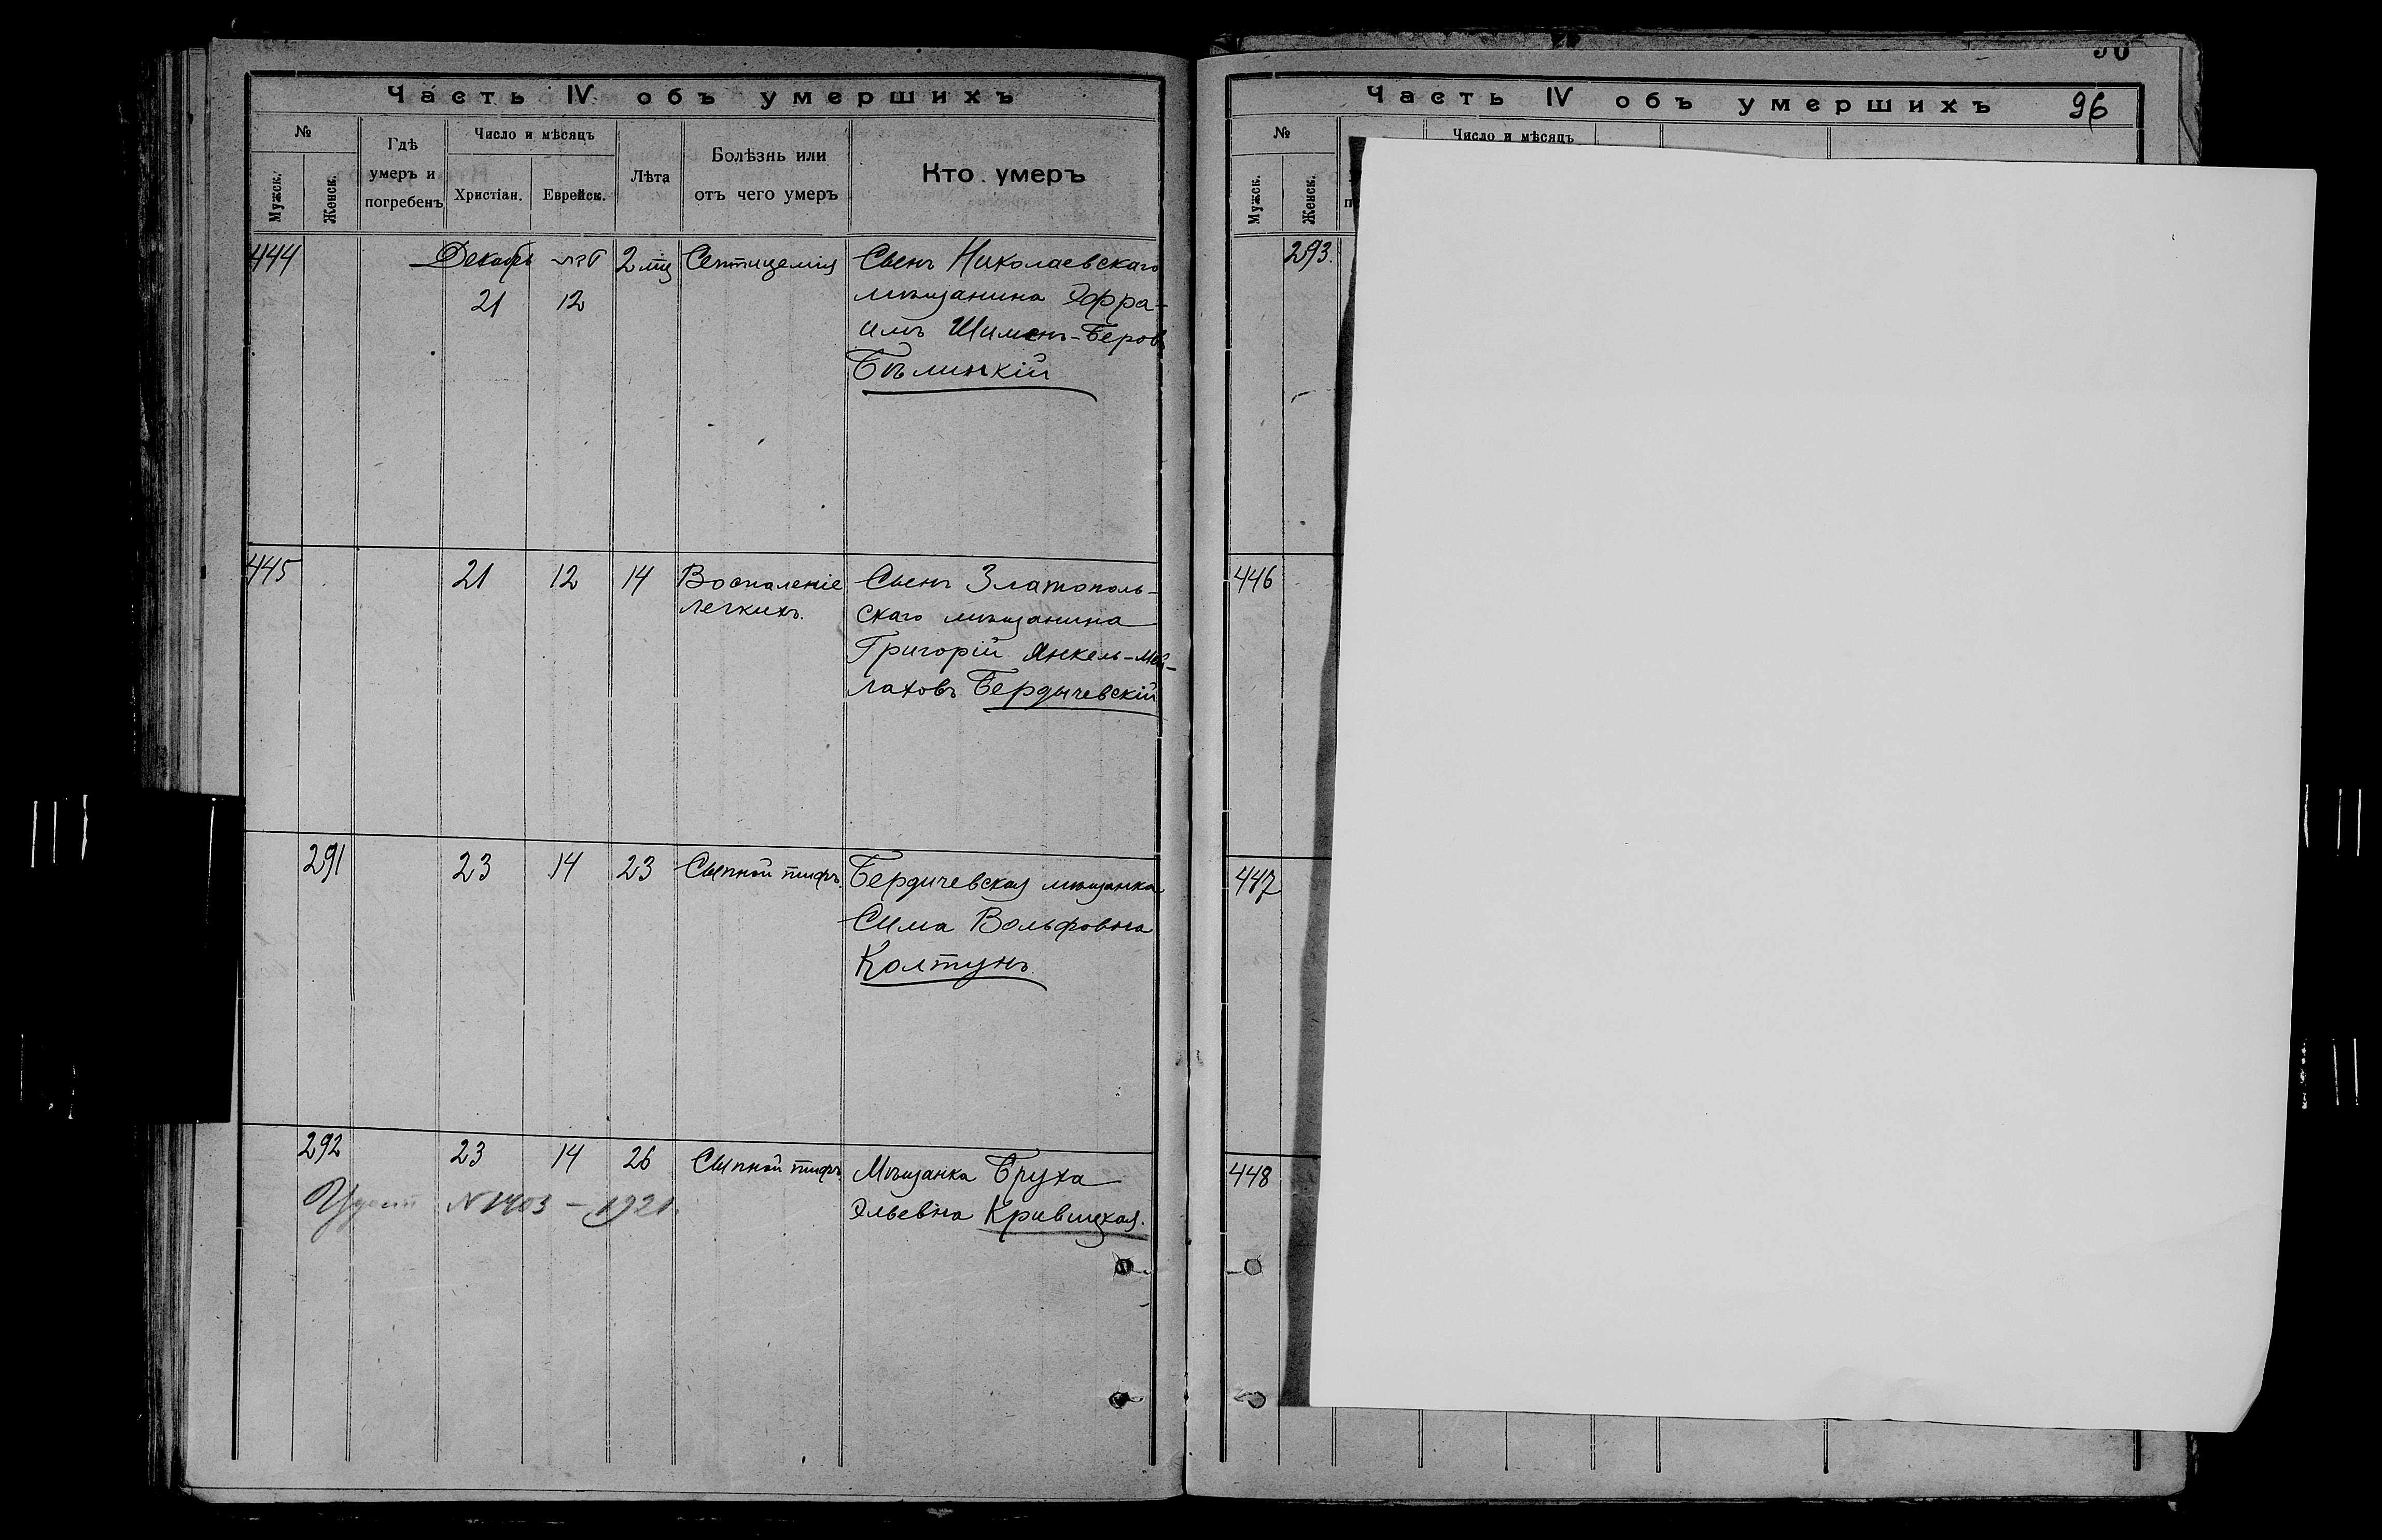 Часть IV объ умершихъ
№
Мужск.
Женск.
Гдѣ
умеръ и
погребенъ
Число и мѣсяцъ
Христіан.
Еврейск.
Лѣта
Болѣзнь или
отъ чего умеръ
Кто умеръ
444
Декабрь
21
12
2 мц
Септицемія
Сынъ Николаевскаго
мѣщанина Эфра-
имъ Шимонъ-Беровъ
Бѣлинкій
445
21
12
14
Воспаленіе
легкихъ.
Сынъ Златополь-
скаго мѣщанина
Григорій Янкель-Мей-
лаховъ Бердычевскій
291
23
14
23
Сыпной тифъ.
Бердичевская мѣщанка
Сима Вольфовна
Колтунъ.
292
23
14
26
Сыпной тифъ
Мѣщанка Бруха
Эльевна Кривицкая.
N 1403 – 1921.
Часть IV объ умершихъ
96
№
Мужск.
Женск.
Число и мѣсяцъ
293.
446
447
448